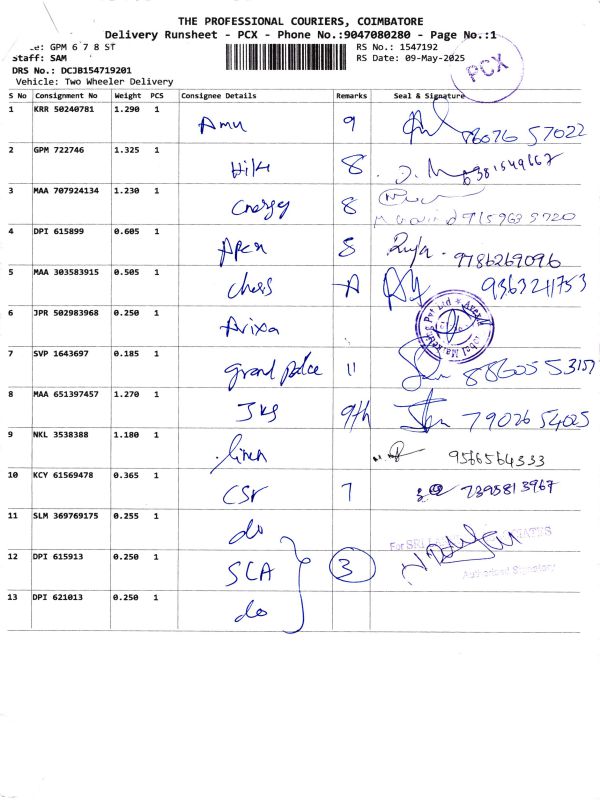 THE PROFESSIONAL COURIERS, COIMBATORE
Delivery Runsheet - PCX - Phone No.:9047080280 - Page No.:1
GPM 6 7 8 ST RS No.: 1547192
Staff: SAM RS Date: 09-May-2025
PCX
DRS No.: DCJB154719201
Vehicle: Two Wheeler Delivery
S No Consignment No Weight PCS Consignee Details Remarks Seal & Signature
1 KRR 50240781 1.290 1 Amu 9 57022
2 GPM 722746 1.325 1 8
3 MAA 707924134 1.230 1 8
4 DPI 615899 0.605 1 Apex 8 9786269096
5 MAA 303583915 0.505 1 Chess A 9363241753
6 JPR 502983968 0.250 1 Arixa
7 SVP 1643697 0.185 1 grand 11
8 MAA 651397457 1.270 1 9th 7902654025
9 NKL 3538388 1.180 1 linen 9566564333
10 KCY 61569478 0.365 1 CSr 7 7395813967
11 SLM 369769175 0.255 1 do
12 DPI 615913 0.250 1 SCA 3
Authorised Signatory
13 DPI 621013 0.250 1 do